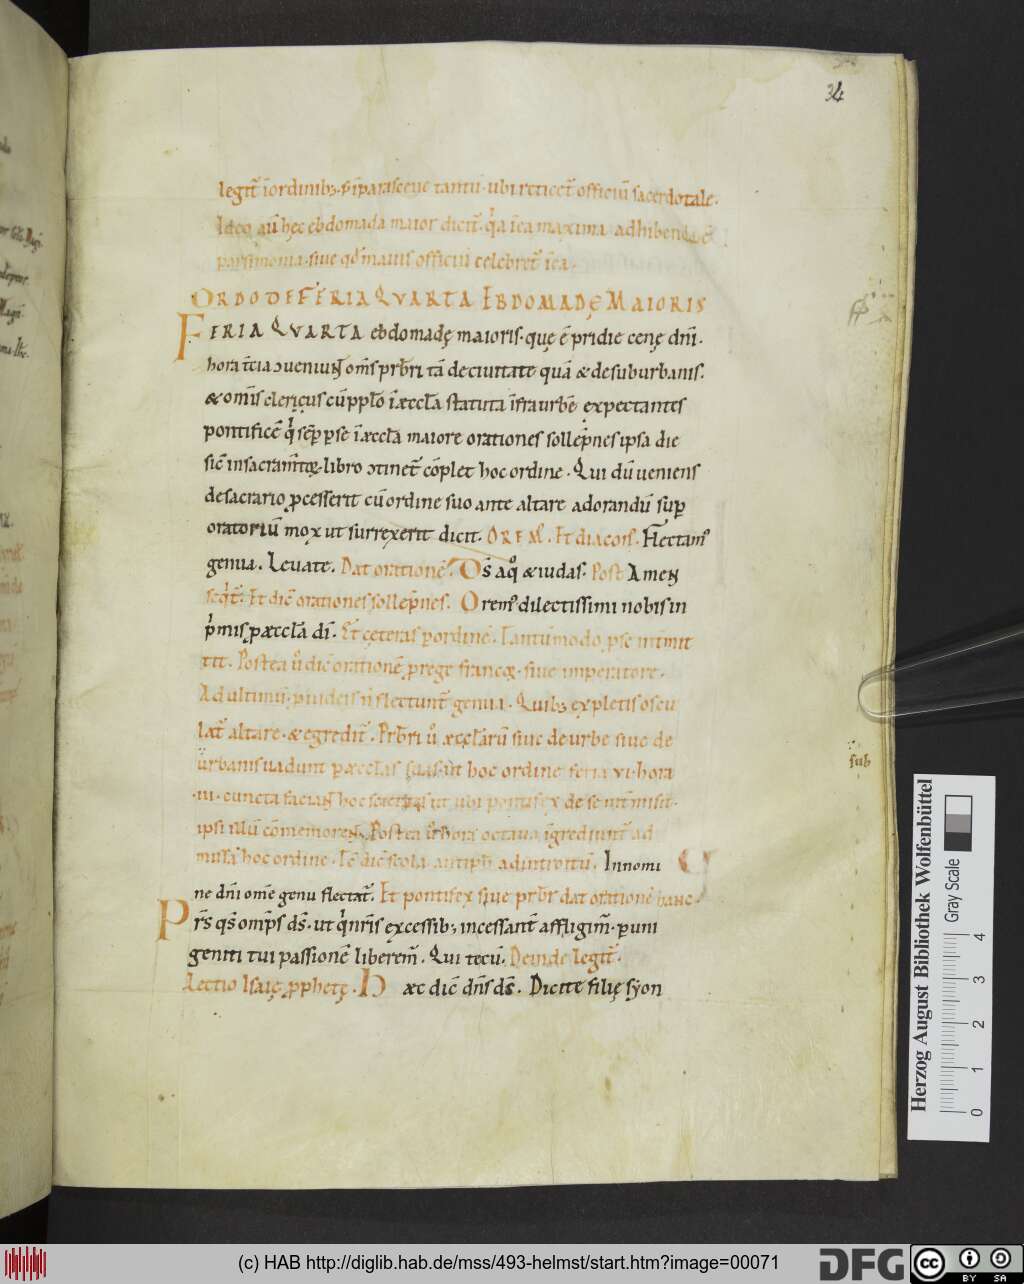 34
legit̄ īordinib; nīparasceue tantū · ubi reticet̄ officiū sacerdotale.
Ideo aū hęc ebdomada maior dicit̄ · qͥa īea maxima adhibenda ē
parsimonia · siue qđ maius officiū celebret̄ īea ·
ORDO DE FERIA QVARTA EBDOMADĘ MAIORIS
FERIA QVARTA ebdomadę maioris · que ē pridie cenę dn̄i ·
hora t̄cia ↄueniun̄ om̄s prb̄ri tā deciuitate quā & desuburbanis.
& om̄is clericus cū pplo īæccl̄a statuta īfra urbē expectantes
pontificē qͥ sēp p se īæccl̄a maiore orationes sollēpnes ipsa die
sic̄ insacram̄toꝝ libro ↄtinet̄ cōplet hoc ordine · Qui dū ueniens
desacrario ꝓcesserit cū ordine suo ante altare adorandū suꝑ
oratoriū mox ut surrexerit dicit. OREM̄. Et diacōs. Flectamꝰ
genua. Leuate. Dat orationē. Ds̄ a qͦ & iudas. Post Amen
seqͥt̄. Et dic̄ orationes sollēpnes. Oremꝰ dilectissimi nobis in
pͥmis ꝓ æccl̄a dī. Et cęteras ꝑ ordinē. Tantūmodo ꝓ se int̄mit
tit. Postea ů dic̄ orationē ꝓ rege francoꝝ · siue imperatore.
Ad ultimū ꝓ iudeis n̄ flectunt̄ genua. Quib; expletis oscu
lat̄ altare · & egredit̄. Prb̄ri ů æccl̄arū siue de urbe siue de
urbanis uadunt ꝑ æccl̄as suas · ut hoc ordine feria vi · hora
· iii · cuncta facian̄ hoc ut ubi pontifex de se int̄misit ·
ipsi illū cōmemoren̄. Postea ů hora octaua īgrediunt̄ ad
missā hoc ordine. dic̄ scola antiph̄ ad introitū. Innomi
ne dn̄i om̄e genu flectat̄. Et pontifex siue prb̄r dat orationē hanc.
Pr̄s qs̄ omp̄s ds̄ · ut qͥ nr̄is excessib; incessant̄ affligim̄ · ꝑ uni
geniti tui passionē liberem̄. Qui tecū. Deinde legit̄.
Lectio Isaię ꝓphetę. Hæc dic̄ dn̄s ds̄. Dicite filię syon
sub
Herzog August Bibliothek Wolfenbüttel
Gray Scale
0 1 2 3 4
(c) HAB http://diglib.hab.de/mss/493-helmst/start.htm?image=00071
DFG
cc BY SA